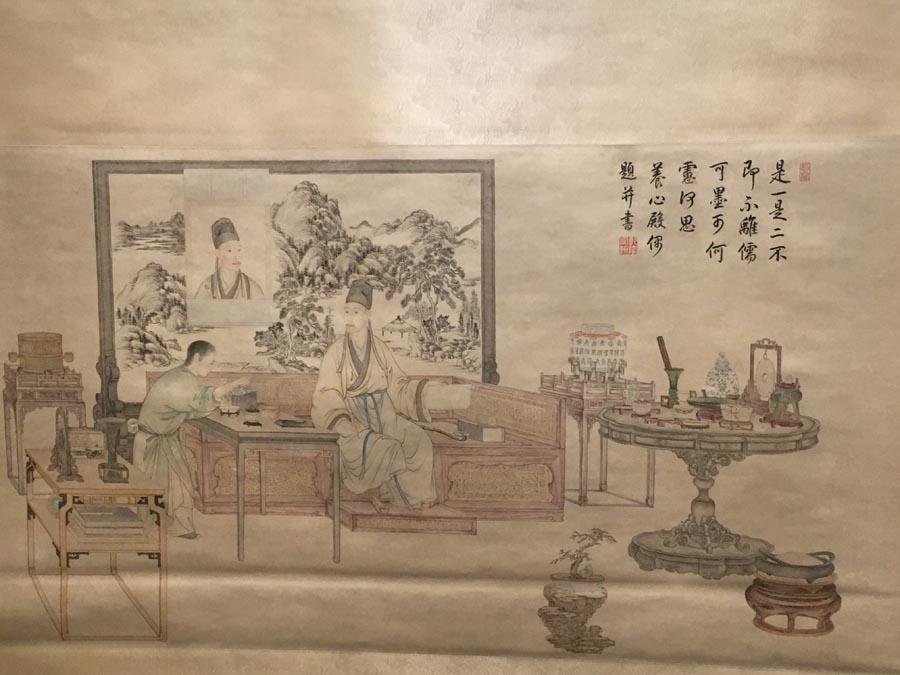 是一是二不
即不離儒
可墨可何
慮何思
養心殿偶
題并書